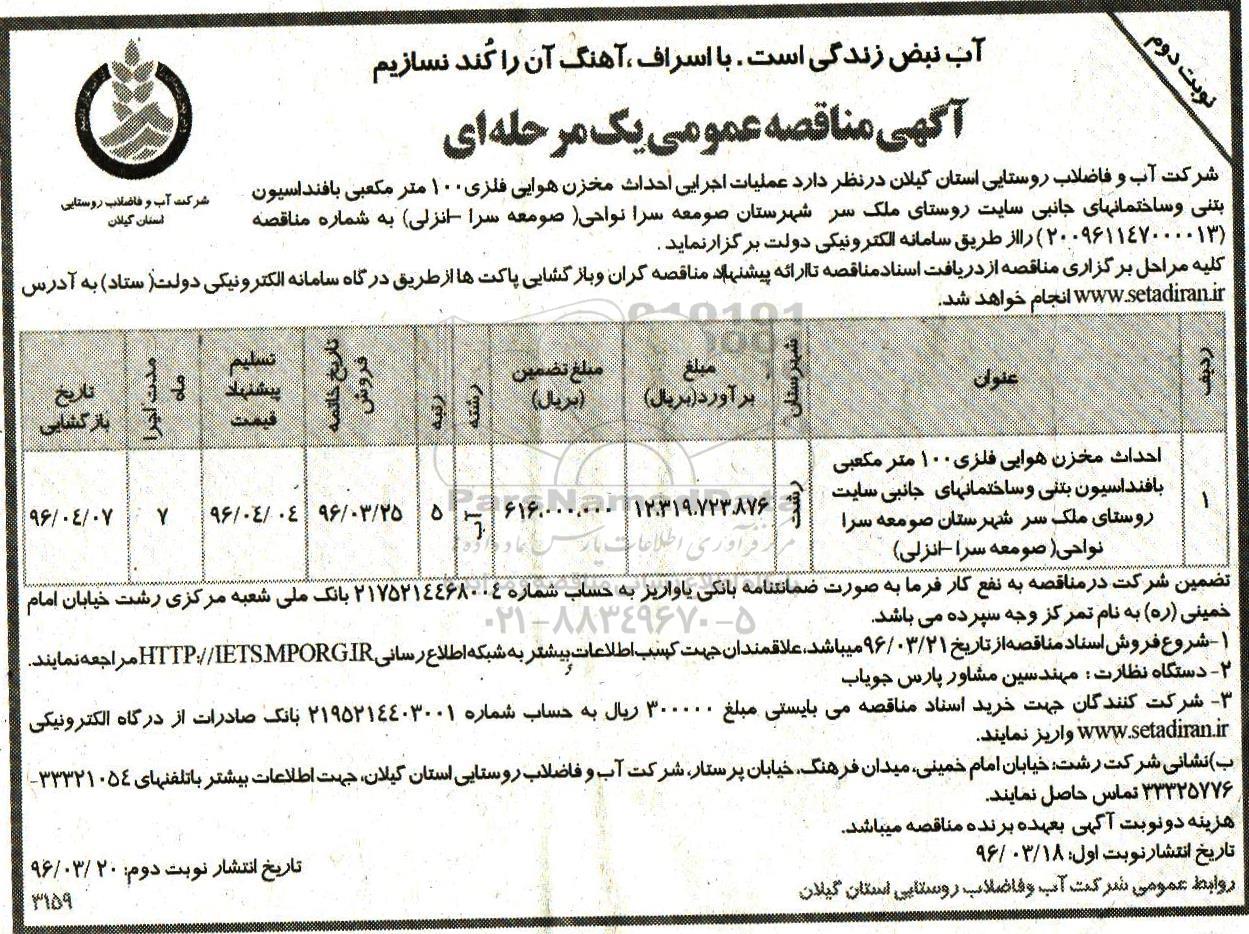 نوبت دوم
آب نبض زندگی است. با اسراف، آهنگ آن را کُند نسازیم
آگهی مناقصه عمومی یک مرحله‌ای
شرکت آب و فاضلاب روستایی
استان گیلان
شرکت آب و فاضلاب روستایی استان گیلان در نظر دارد عملیات اجرایی احداث مخزن هوایی فلزی ۱۰۰ متر مکعبی بافنداسیون
بتنی وساختمانهای جانبی سایت روستای ملک سر شهرستان صومعه سرا نواحی( صومعه سرا –انزلی) به شماره مناقصه
(۲۰۰۹۶۱۱۴۷۰۰۰۰۱۳) رااز طریق سامانه الکترونیکی دولت برگزارنماید.
کلیه مراحل برگزاری مناقصه ازدریافت اسنادمناقصه تاارائه پیشنهاد مناقصه گران وبازگشایی پاکت ها ازطریق درگاه سامانه الکترونیکی دولت( ستاد) به آدرس
www.setadiran.ir انجام خواهد شد.
ردیف | عنوان | شهرستان | مبلغ برآورد(بریال) | مبلغ تضمین (بریال) | رشته | رتبه | تاریخ خاتمه فروش | تسلیم پیشنهاد قیمت | مدت اجرا ماه | تاریخ بازگشایی
۱ | احداث مخزن هوایی فلزی ۱۰۰ متر مکعبی
بافنداسیون بتنی وساختمانهای جانبی سایت
روستای ملک سر شهرستان صومعه سرا
نواحی( صومعه سرا –انزلی) | رشت | ۱۲.۳۱۹.۷۲۳.۸۷۶ | ۶۱۶.۰۰۰.۰۰۰ | آب | ۵ | ۹۶/۰۳/۲۵ | ۹۶/۰۴/۰۴ | ۷ | ۹۶/۰۴/۰۷
ParsNamadData
مرکز فرآوری اطلاعات پارس نماد داده ها
۰۲۱-۸۸۳۴۹۶۷۰-۵
تضمین شرکت درمناقصه به نفع کار فرما به صورت ضمانتنامه بانکی یاواریز به حساب شماره ۲۱۷۵۲۱۴۴۶۸۰۰۴ بانک ملی شعبه مرکزی رشت خیابان امام
خمینی (ره) به نام تمرکز وجه سپرده می باشد.
۱-شروع فروش اسناد مناقصه از تاریخ ۹۶/۰۳/۲۱ میباشد، علاقمندان جهت کسب اطلاعات بیشتر به شبکه اطلاع رسانی HTTP://IETS.MPORG.IR مراجعه نمایند.
۲- دستگاه نظارت: مهندسین مشاور پارس جویاب
۳- شرکت کنندگان جهت خرید اسناد مناقصه می بایستی مبلغ ۳۰۰۰۰۰ ریال به حساب شماره ۲۱۹۵۲۱۴۴۰۳۰۰۱ بانک صادرات از درگاه الکترونیکی
www.setadiran.ir واریز نمایند.
ب)نشانی شرکت رشت: خیابان امام خمینی، میدان فرهنگ، خیابان پرستار، شرکت آب و فاضلاب روستایی استان گیلان، جهت اطلاعات بیشتر باتلفنهای ۳۳۳۲۱۰۵۴-
۳۳۳۲۵۷۷۶ تماس حاصل نمایند.
هزینه دونوبت آگهی بعهده برنده مناقصه میباشد.
تاریخ انتشارنوبت اول: ۹۶/۰۳/۱۸
تاریخ انتشار نوبت دوم: ۹۶/۰۳/۲۰
روابط عمومی شرکت آب وفاضلاب روستایی استان گیلان
۳۱۵۹